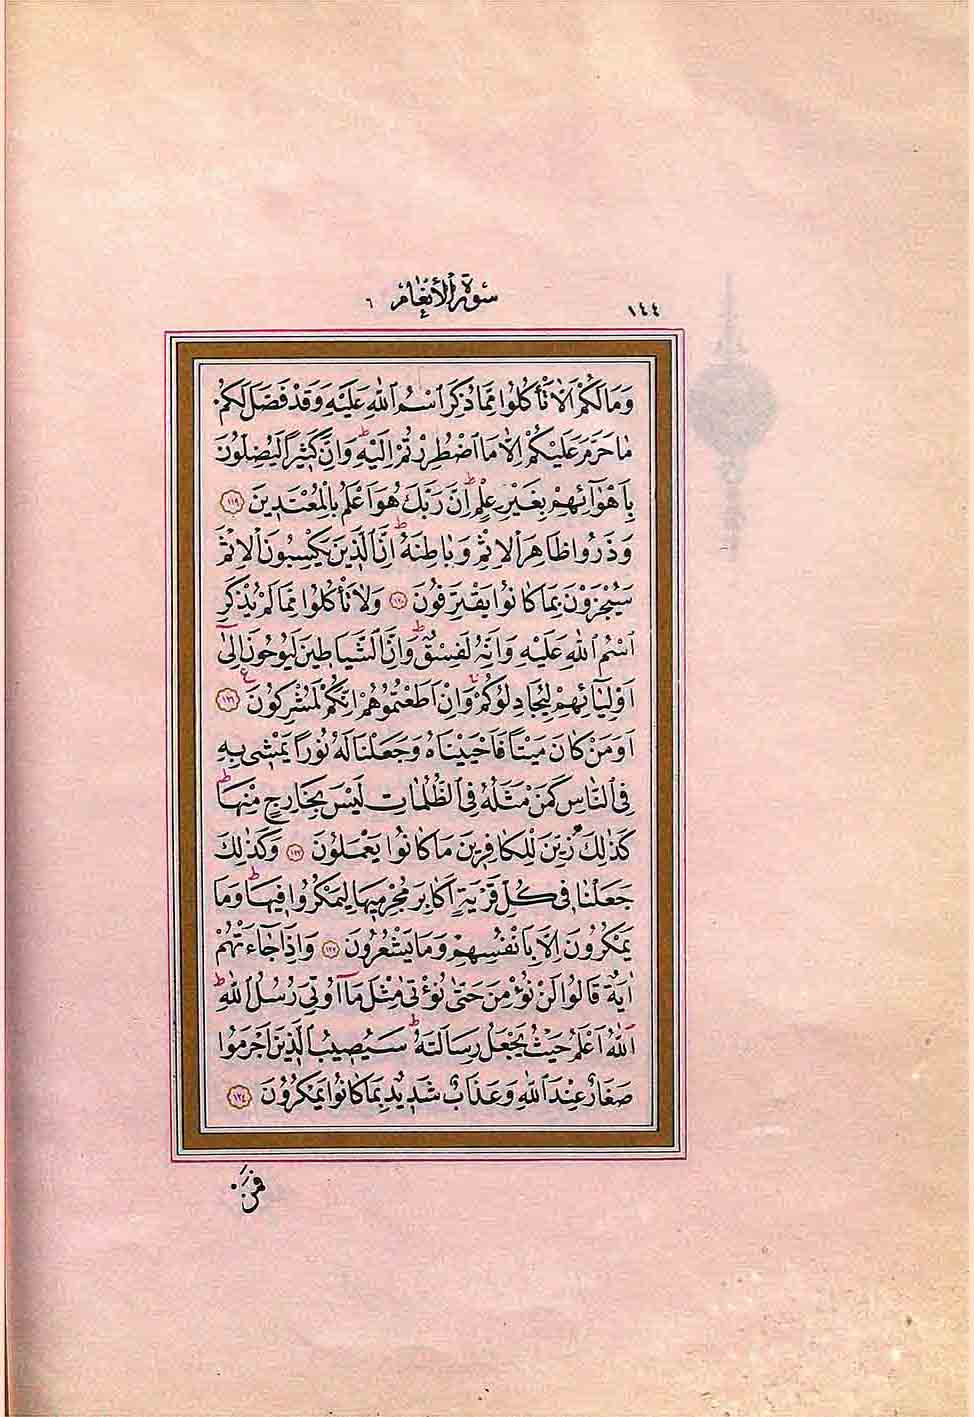 ١٤٤ سورة الأنعام ٦
وَمَا لَكُمْ اَلَّا تَأْكُلُوا مِمَّا ذُكِرَ اسْمُ اللّٰهِ عَلَيْهِ وَقَدْ فَصَّلَ لَكُمْ
مَا حَرَّمَ عَلَيْكُمْ اِلَّا مَا اضْطُرِرْتُمْ اِلَيْهِ ط وَاِنَّ كَثِيرًا لَيُضِلُّونَ
بِاَهْوَآئِهِمْ بِغَيْرِ عِلْمٍ ط اِنَّ رَبَّكَ هُوَ اَعْلَمُ بِالْمُعْتَدِينَ ١١٩
وَذَرُوا ظَاهِرَ الْاِثْمِ وَبَاطِنَهُ ط اِنَّ الَّذِينَ يَكْسِبُونَ الْاِثْمَ
سَيُجْزَوْنَ بِمَا كَانُوا يَقْتَرِفُونَ ١٢٠ وَلَا تَأْكُلُوا مِمَّا لَمْ يُذْكَرِ
اسْمُ اللّٰهِ عَلَيْهِ وَاِنَّهُ لَفِسْقٌ ط وَاِنَّ الشَّيَاطِينَ لَيُوحُونَ اِلٰٓى
اَوْلِيَآئِهِمْ لِيُجَادِلُوكُمْ وَاِنْ اَطَعْتُمُوهُمْ اِنَّكُمْ لَمُشْرِكُونَ ع ١٢١
اَوَمَنْ كَانَ مَيْتًا فَاَحْيَيْنَاهُ وَجَعَلْنَا لَهُ نُورًا يَمْشِي بِهِ
فِي النَّاسِ كَمَنْ مَثَلُهُ فِي الظُّلُمَاتِ لَيْسَ بِخَارِجٍ مِنْهَا ط
كَذٰلِكَ زُيِّنَ لِلْكَافِرِينَ مَا كَانُوا يَعْمَلُونَ ١٢٢ وَكَذٰلِكَ
جَعَلْنَا فِي كُلِّ قَرْيَةٍ اَكَابِرَ مُجْرِمِيهَا لِيَمْكُرُوا فِيهَا ط وَمَا
يَمْكُرُونَ اِلَّا بِاَنْفُسِهِمْ وَمَا يَشْعُرُونَ ١٢٣ وَاِذَا جَآءَتْهُمْ
اٰيَةٌ قَالُوا لَنْ نُؤْمِنَ حَتّٰى نُؤْتٰى مِثْلَ مَآ اُوتِيَ رُسُلُ اللّٰهِ ط
اَللّٰهُ اَعْلَمُ حَيْثُ يَجْعَلُ رِسَالَتَهُ ط سَيُصِيبُ الَّذِينَ اَجْرَمُوا
صَغَارٌ عِنْدَ اللّٰهِ وَعَذَابٌ شَدِيدٌ بِمَا كَانُوا يَمْكُرُونَ ١٢٤
فَمَنْ